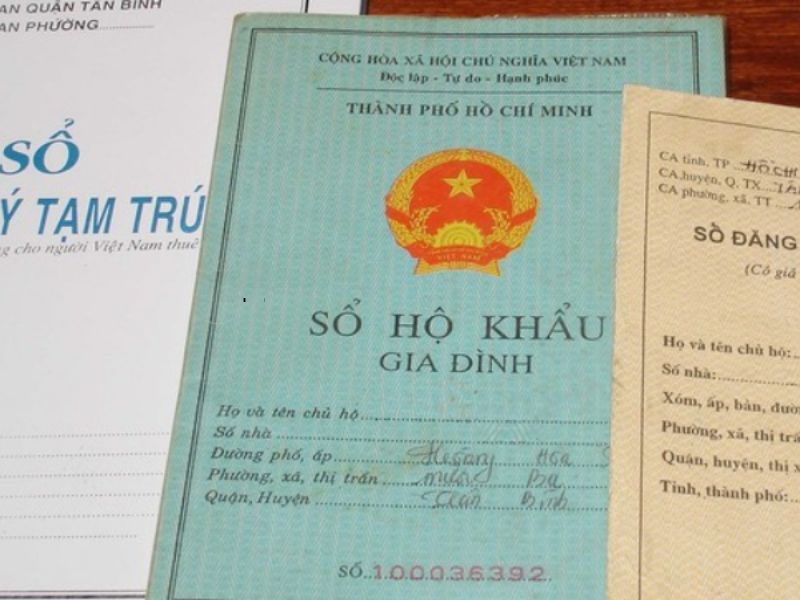 AN QUẬN TÂN BÌNH
AN PHƯỜNG
SỔ
Ý TẠM TRÚ
ng cho người Việt Nam thuê
CỘNG HÒA XÃ HỘI CHỦ NGHĨA VIỆT NAM
Độc lập - Tự do - Hạnh phúc
THÀNH PHỐ HỒ CHÍ MINH
VIỆT NAM
SỔ HỘ KHẨU
GIA ĐÌNH
Họ và tên chủ hộ
Số nhà
Đường phố, ấp
Phường, xã, thị trấn mười Ba
Quận, Huyện Tân Bình
SỐ 100036392
CA tỉnh, TP HỒ CHÍ
CA huyện, Q, TX
CA phường, xã, TT
SỔ ĐĂNG
(Có giá
Họ và tên chủ hộ:
Số nhà:
Xóm, ấp, bản, đườ
Phường, xã, thị trấ
Quận, huyện, thị x
Tỉnh, thành phố: